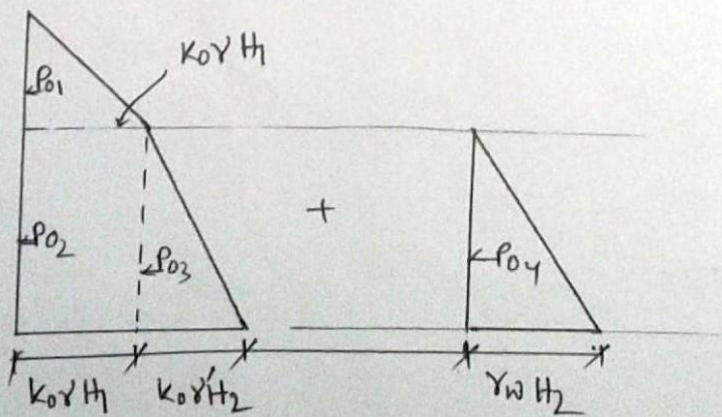 K₀γH₁
P₀₁
P₀₂
P₀₃
+
P₀₄
K₀γH₁
K₀γ'H₂
γw H₂